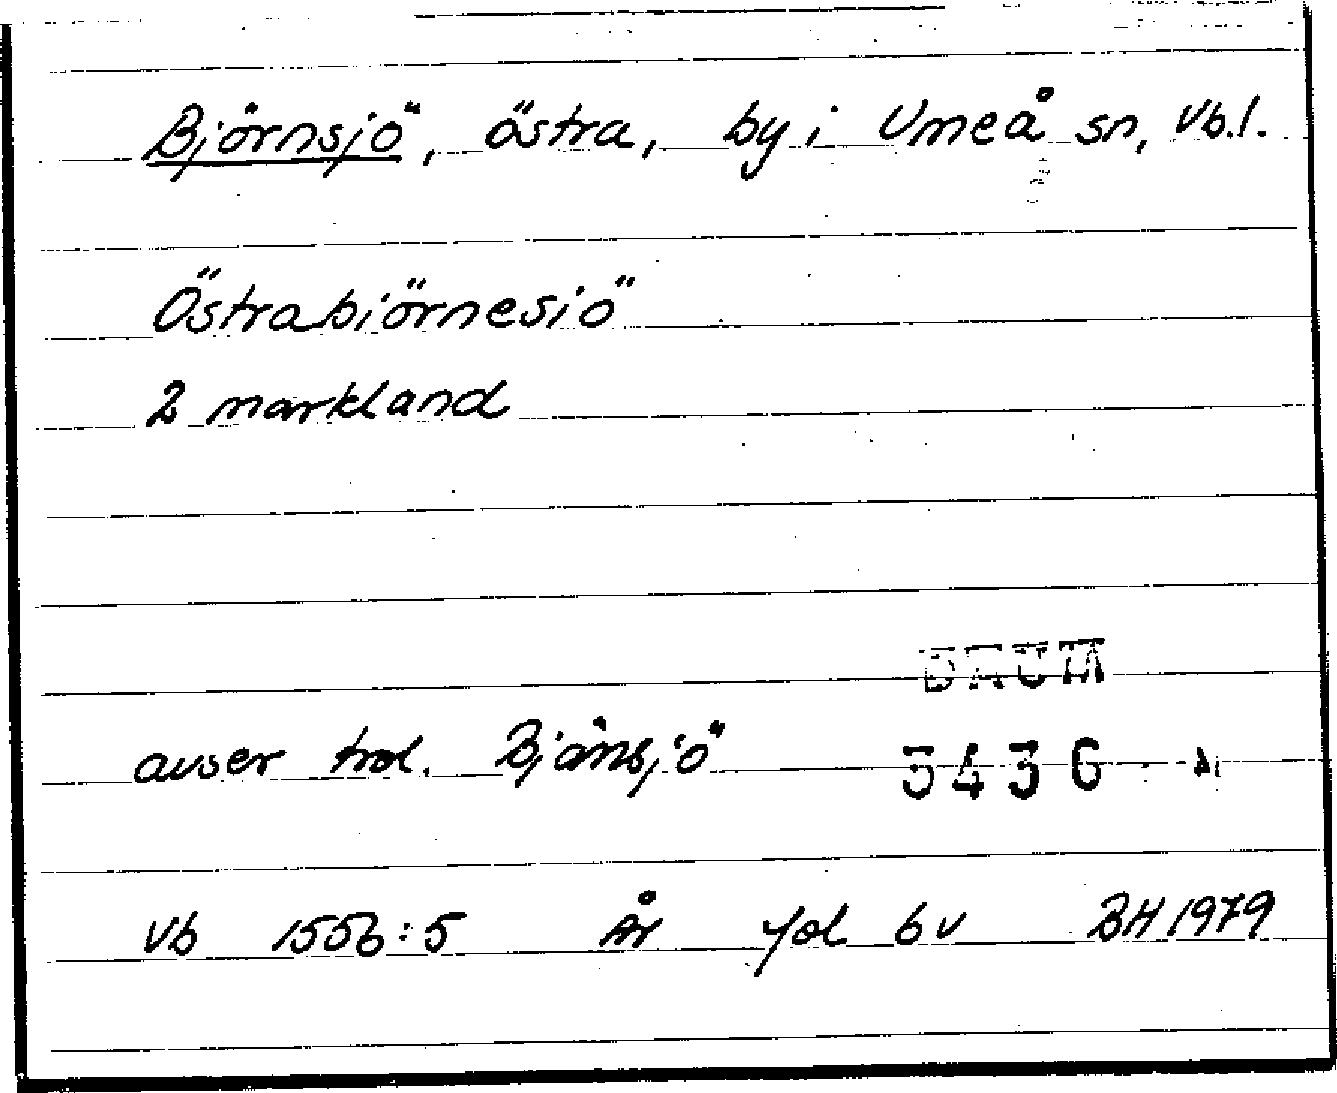 Björnsjö, östra, by i Umeå sn, Vb.l.
Östrabiörnesiö
2 markland
DAUM
avser trol. Bjänsjö
5436
Vb 1556:5 År fol 6v BH 1979